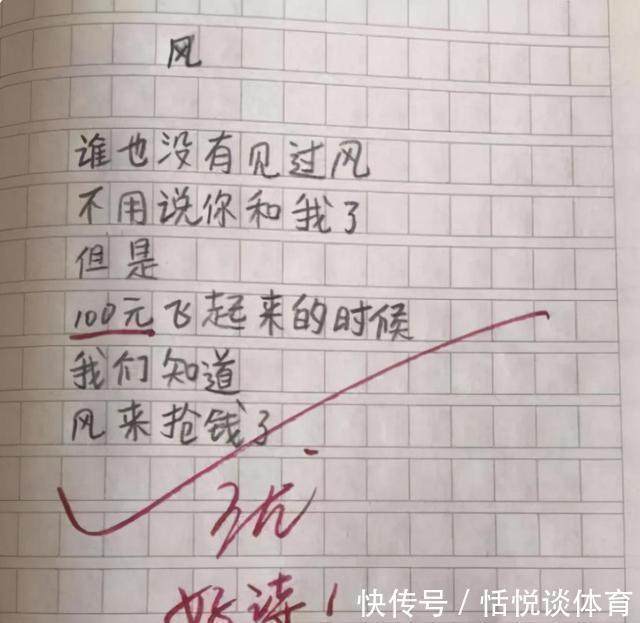 风
谁也没有见过风
不用说你和我了
但是
100元飞起来的时候
我们知道
风来抢钱了
优
好诗！
快传号／恬悦谈体育